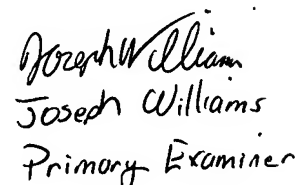 Joseph William
Joseph Williams
Primary Examiner